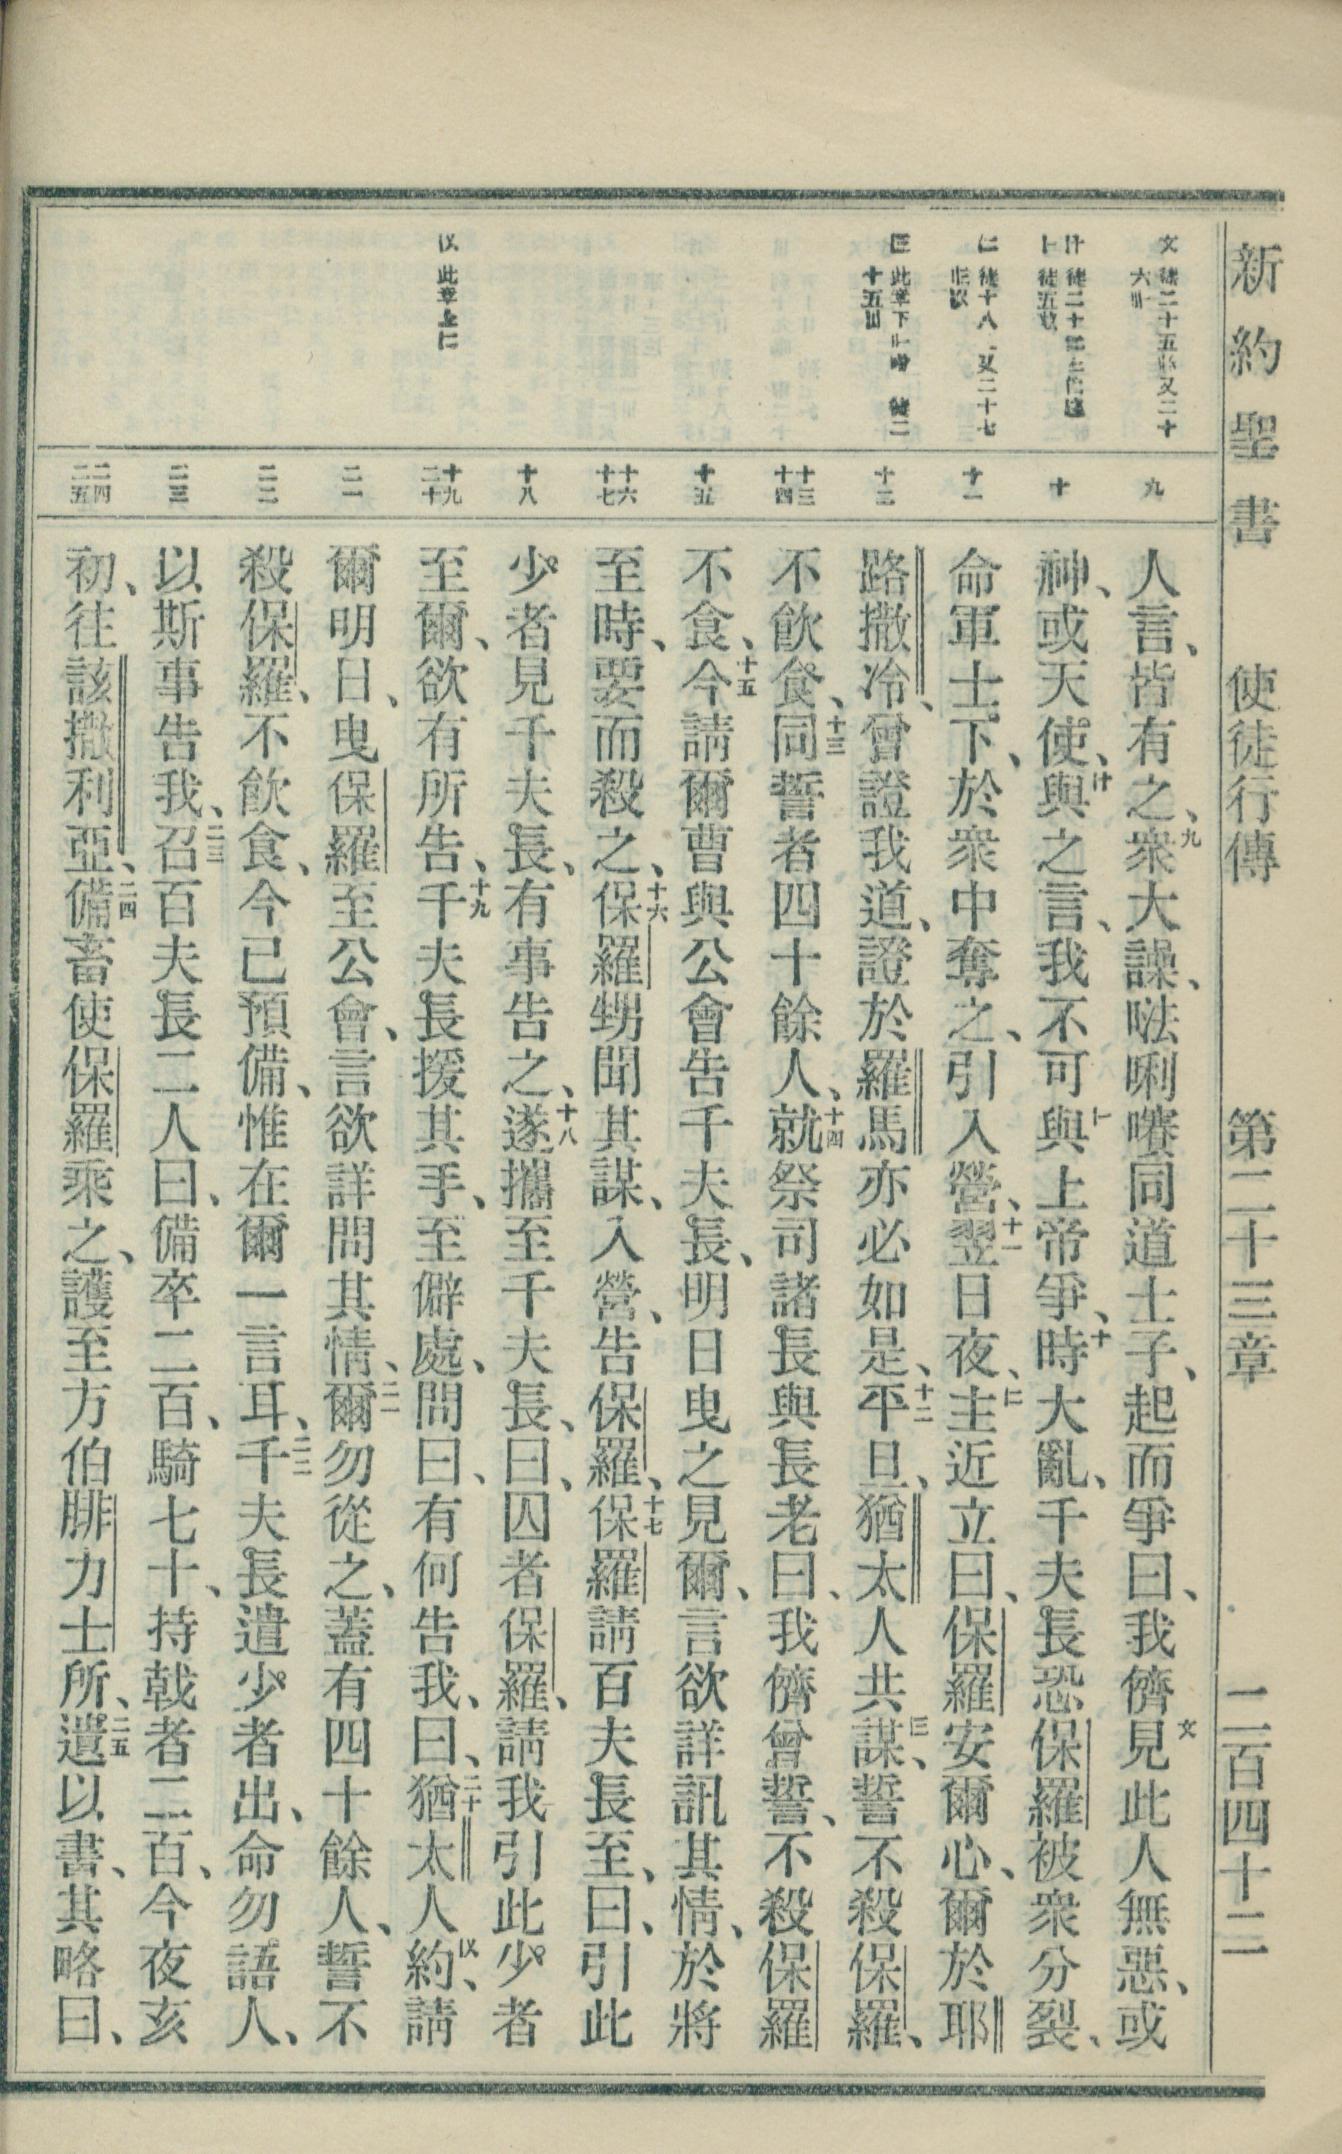 新約聖書 使徒行傳 第二十三章 二百四十二
九
十
十一
十二
十三
十四
十五
十六
十七
十八
十九
二十
二一
二二
二三
二四
二五
人言、皆有之、九衆大譟、𠵽唎㘔同道士子、起而爭曰、我儕見此人無惡、或
神、或天使、與之言、我不可與上帝爭、十時大亂、千夫長恐保羅被衆分裂、
命軍士下、於衆中奪之、引入營、十一翌日夜、主近立曰、保羅安爾心、爾於耶
路撒冷、曾證我道、證於羅馬亦必如是、十二平旦、猶太人共謀、誓不殺保羅、
不飲食、十三同誓者四十餘人、十四就祭司諸長與長老曰、我儕曾誓、不殺保羅
不食、十五今請爾曹與公會告千夫長、明日曳之見爾、言欲詳訊其情、於將
至時、要而殺之、十六保羅甥聞其謀、入營、告保羅、十七保羅請百夫長至、曰、引此
少者見千夫長、有事告之、十八遂攜至千夫長、曰、囚者保羅、請我引此少者
至爾、欲有所告、十九千夫長援其手、至僻處、問曰、有何告我、曰、二十猶太人約、請
爾明日、曳保羅至公會、言欲詳問其情、二一爾勿從之、蓋有四十餘人、誓不
殺保羅、不飲食、今已預備、惟在爾一言耳、二二千夫長遣少者出、命勿語人、
以斯事告我、二三召百夫長二人曰、備卒二百、騎七十、持戟者二百、今夜亥
初、往該撒利亞、二四備畜使保羅乘之、護至方伯腓力士所、二五遺以書、其略曰、